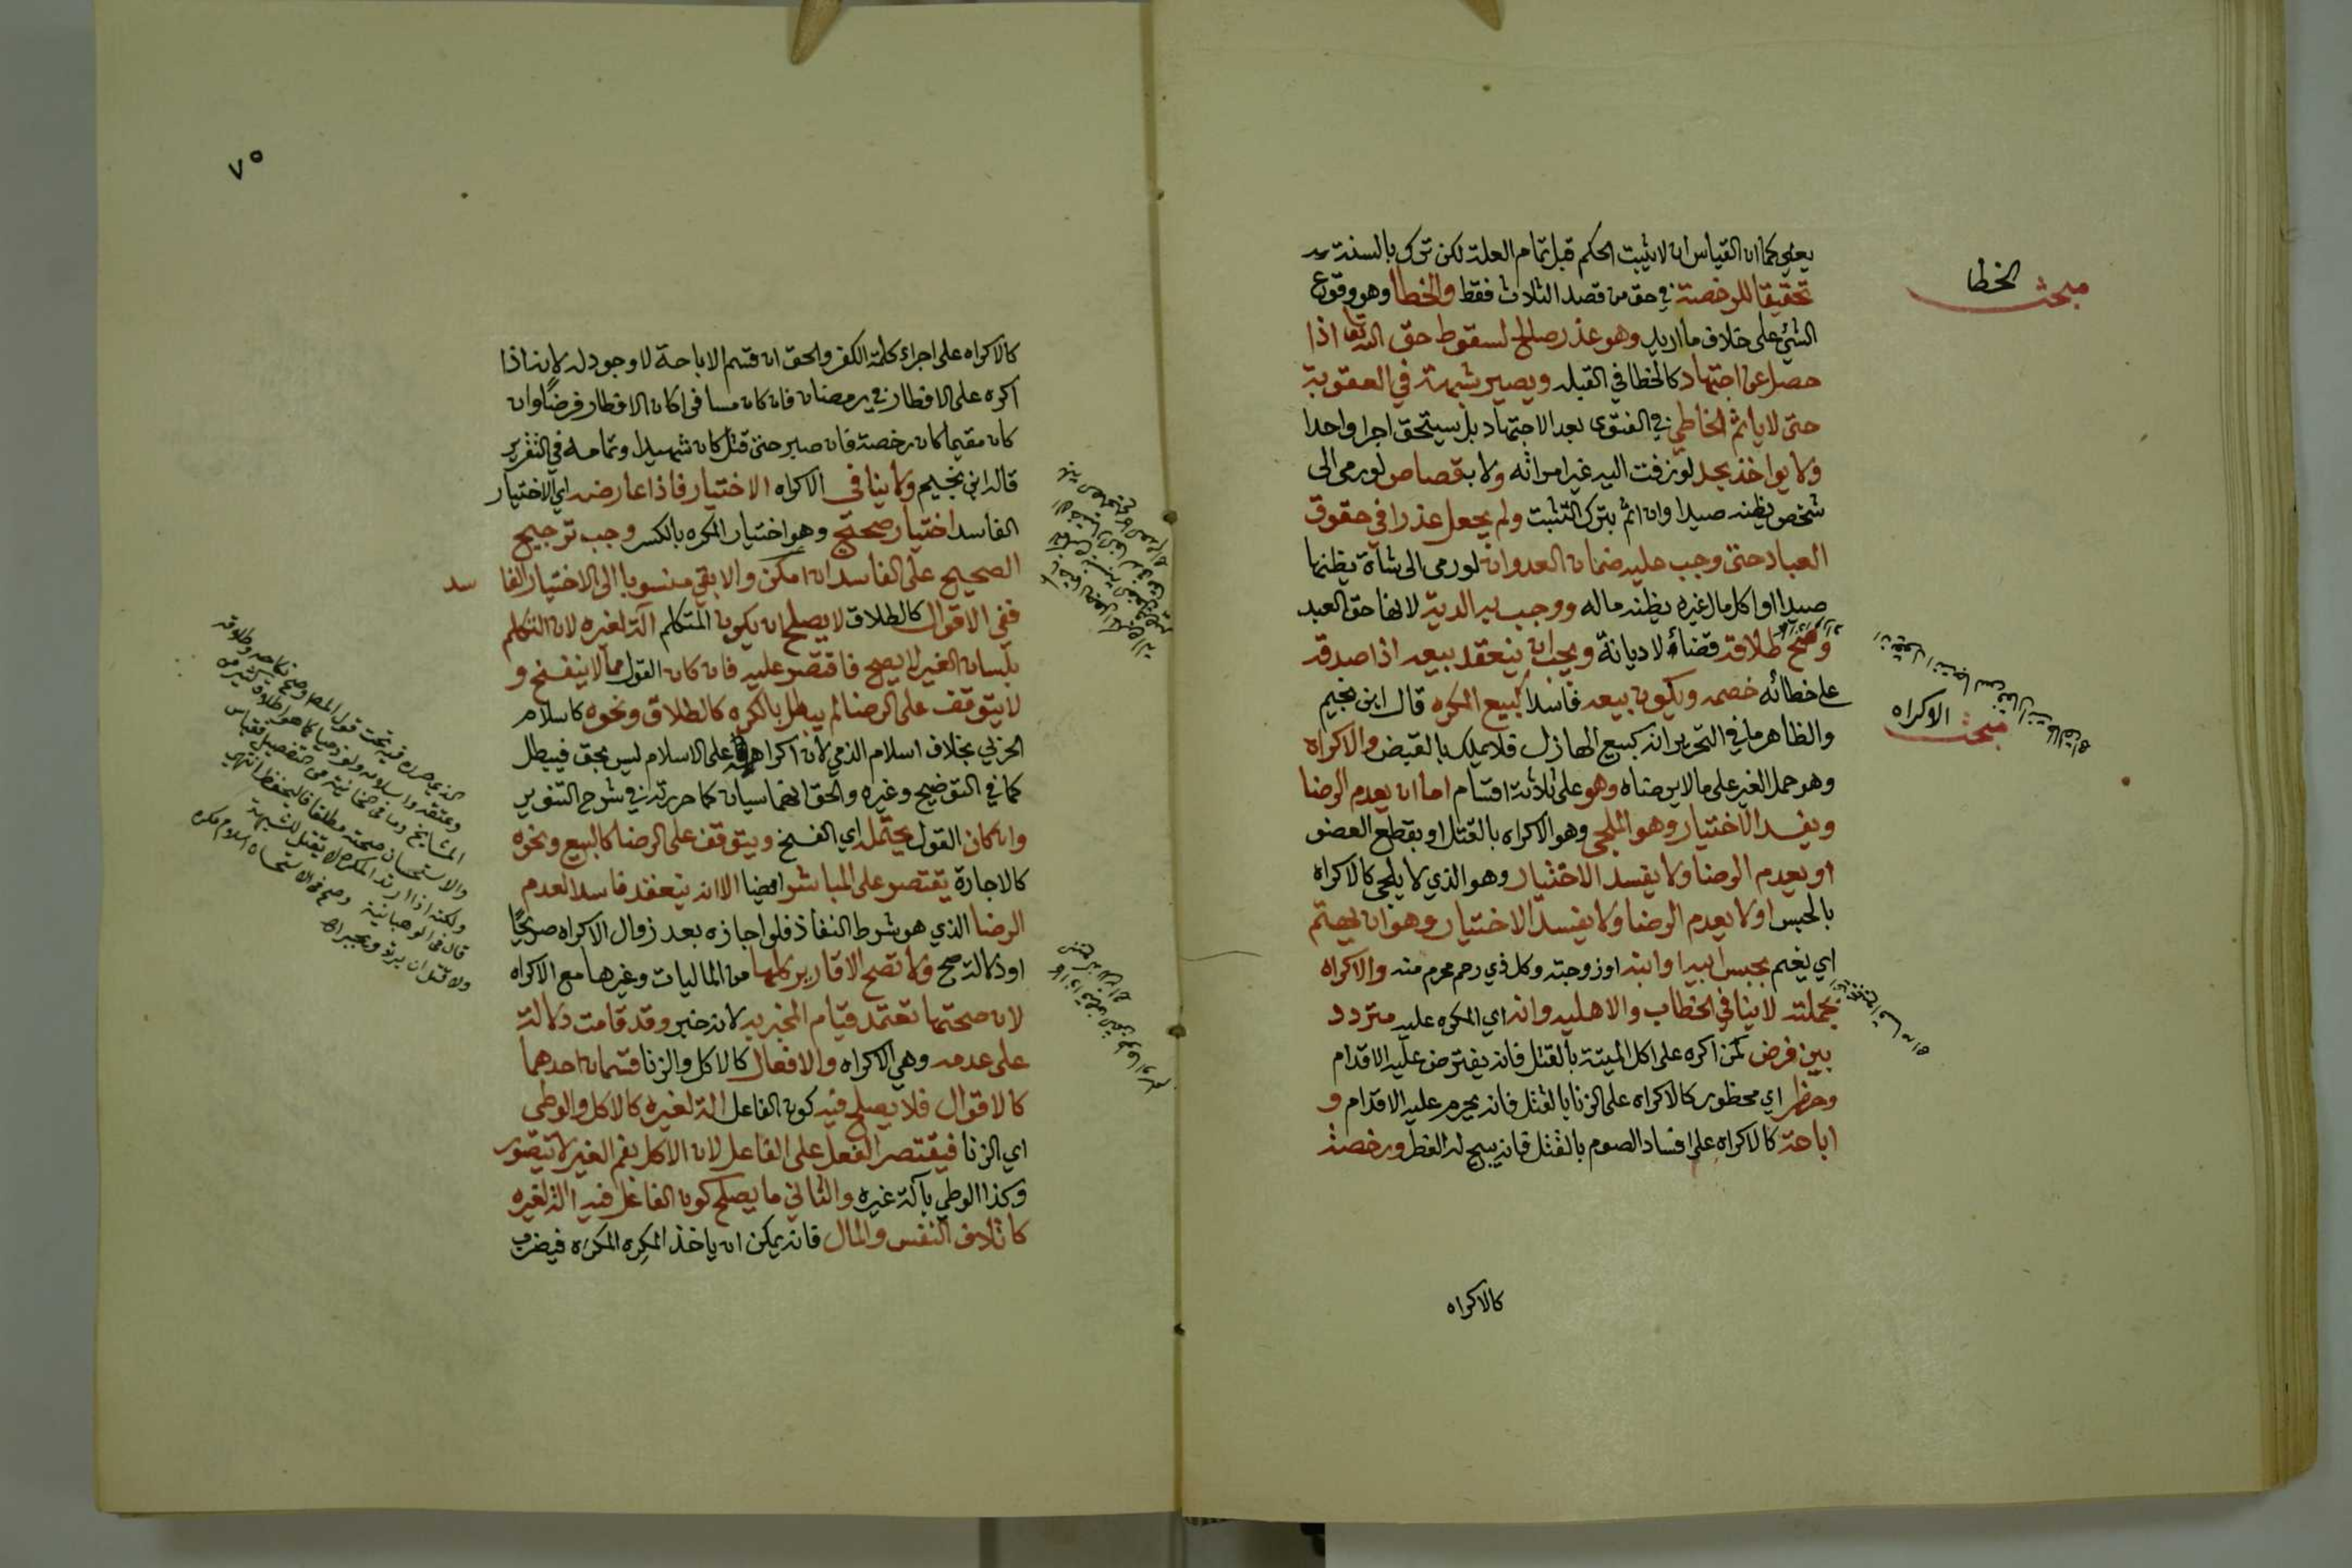 مبحث الخطا
يعني كما ان القياس ان لا يثبت الحكم قبل تمام العلة لكن ترك بالسنة
تحقيقا للرخصة في حق من قصد الثلاث فقط والخطأ وهو وقوع
الشيء على خلاف ما اريد وهو عذر صالح لسقوط حق الله تعا اذا
حصل عن اجتهاد كالخطا في القبله ويصير شبهة في العقوبة
حتى لا ياثم الخاطي في الفتوى بعد الاجتهاد بل يستحق اجرا واحدا
ولا يواخذ بحد لو زفت اليه غير امراته ولا بقصاص لو رمى الى
شخص يظنه صيدا وان اثم بترك التثبت ولم يجعل عذرا في حقوق
العباد حتى وجب عليه ضمان العدوان لو رمى الى شاة يظنها
صيدا او اكل مال غيره يظنه ماله ووجب به الدية لانها حق العبد
وصح طلاقه قضاء لا ديانة ويجب ان ينعقد بيعه اذا صدقه
على خطائه خصمه ويكون بيعه فاسدا كبيع المكره قال ابن نجيم
مبحث الاكراه
والظاهر ما في التحرير انه كبيع الهازل فلا يملك بالقبض والاكراه
وهو حمل الغير على ما لا يرضاه وهو على ثلاثة اقسام اما ان يعدم الرضا
ويفسد الاختيار وهو الملجي وهو الاكراه بالقتل او بقطع العضو
او يعدم الرضا ولا يفسد الاختيار وهو الذي لا يلجي كالاكراه
بالحبس او لا يعدم الرضا ولا يفسد الاختيار وهو ان يهتم
اي يغتم بحبس ابيه او ابنه او زوجته وكل ذي رحم محرم منه والاكراه
بجملته لا ينافي الخطاب والاهليه وانه اي المكره عليه متردد
بين فرض كمن اكره على اكل الميتة بالقتل فانه يفترض عليه الاقدام
وحظر اي محظور كالاكراه على الزنا بالقتل فانه يحرم عليه الاقدام و
اباحة كالاكراه على افساد الصوم بالقتل فانه يبيح له الفطر ورخصة
كالاكراه
٧٥
كالاكراه على اجراء كلمة الكفر والحق ان قسم الاباحة لا وجود له لانه اذا
اكره على الافطار في رمضان فان كان مسافرا كان الافطار فرضا وان
كان مقيما كان رخصة فان صبر حتى قتل كان شهيدا وتمامه في التقرير
قاله ابن نجيم ولا ينافي الاكراه الاختيار فاذا عارضه اي الاختيار
الفاسد اختيار صحيح وهو اختيار المكره بالكسر وجب ترجيح
الصحيح على الفاسد ان امكن والا بقي منسوبا الى الاختيار الفا سد
ففي الاقوال كالطلاق لا يصلح ان يكون المتكلم آلة لغيره لان التكلم
بلسان الغير لا يصح فاقتصر عليه فان كان القول مما لا ينفسخ و
لا يتوقف على الرضا لم يبطل بالكره كالطلاق ونحوه كاسلام
الحربي بخلاف اسلام الذمي لان اكراهه على الاسلام ليس بحق فيبطل
كما في التوضيح وغيره والحق انهما سيان كما حررته في شرح التنوير
وان كان القول يحتمله اي الفسخ ويتوقف على الرضا كالبيع ونحوه
كالاجارة يقتصر على المباشر ايضا الا انه ينعقد فاسدا لعدم
الرضا الذي هو شرط النفاذ فلو اجازه بعد زوال الاكراه صريحًا
او دلالة صح ولا تصح الاقارير كلها من الماليات وغيرها مع الاكراه
لان صحتها تعتمد قيام المخبر به لانه خبر وقد قامت دلالة
على عدمه وهي الاكراه والافعال كالاكل والزنا قسمان احدهما
كالاقوال فلا يصلح فيه كون الفاعل الة لغيره كالاكل والوطي
اي الزنا فيقتصر الفعل على الفاعل لان الاكل بفم الغير لا يتصور
وكذا الوطي بآلة غيره والثاني ما يصلح كون الفاعل فيه الة لغيره
كاتلاف النفس والمال فانه يمكن ان ياخذ المكِره المكرَه فيضرب